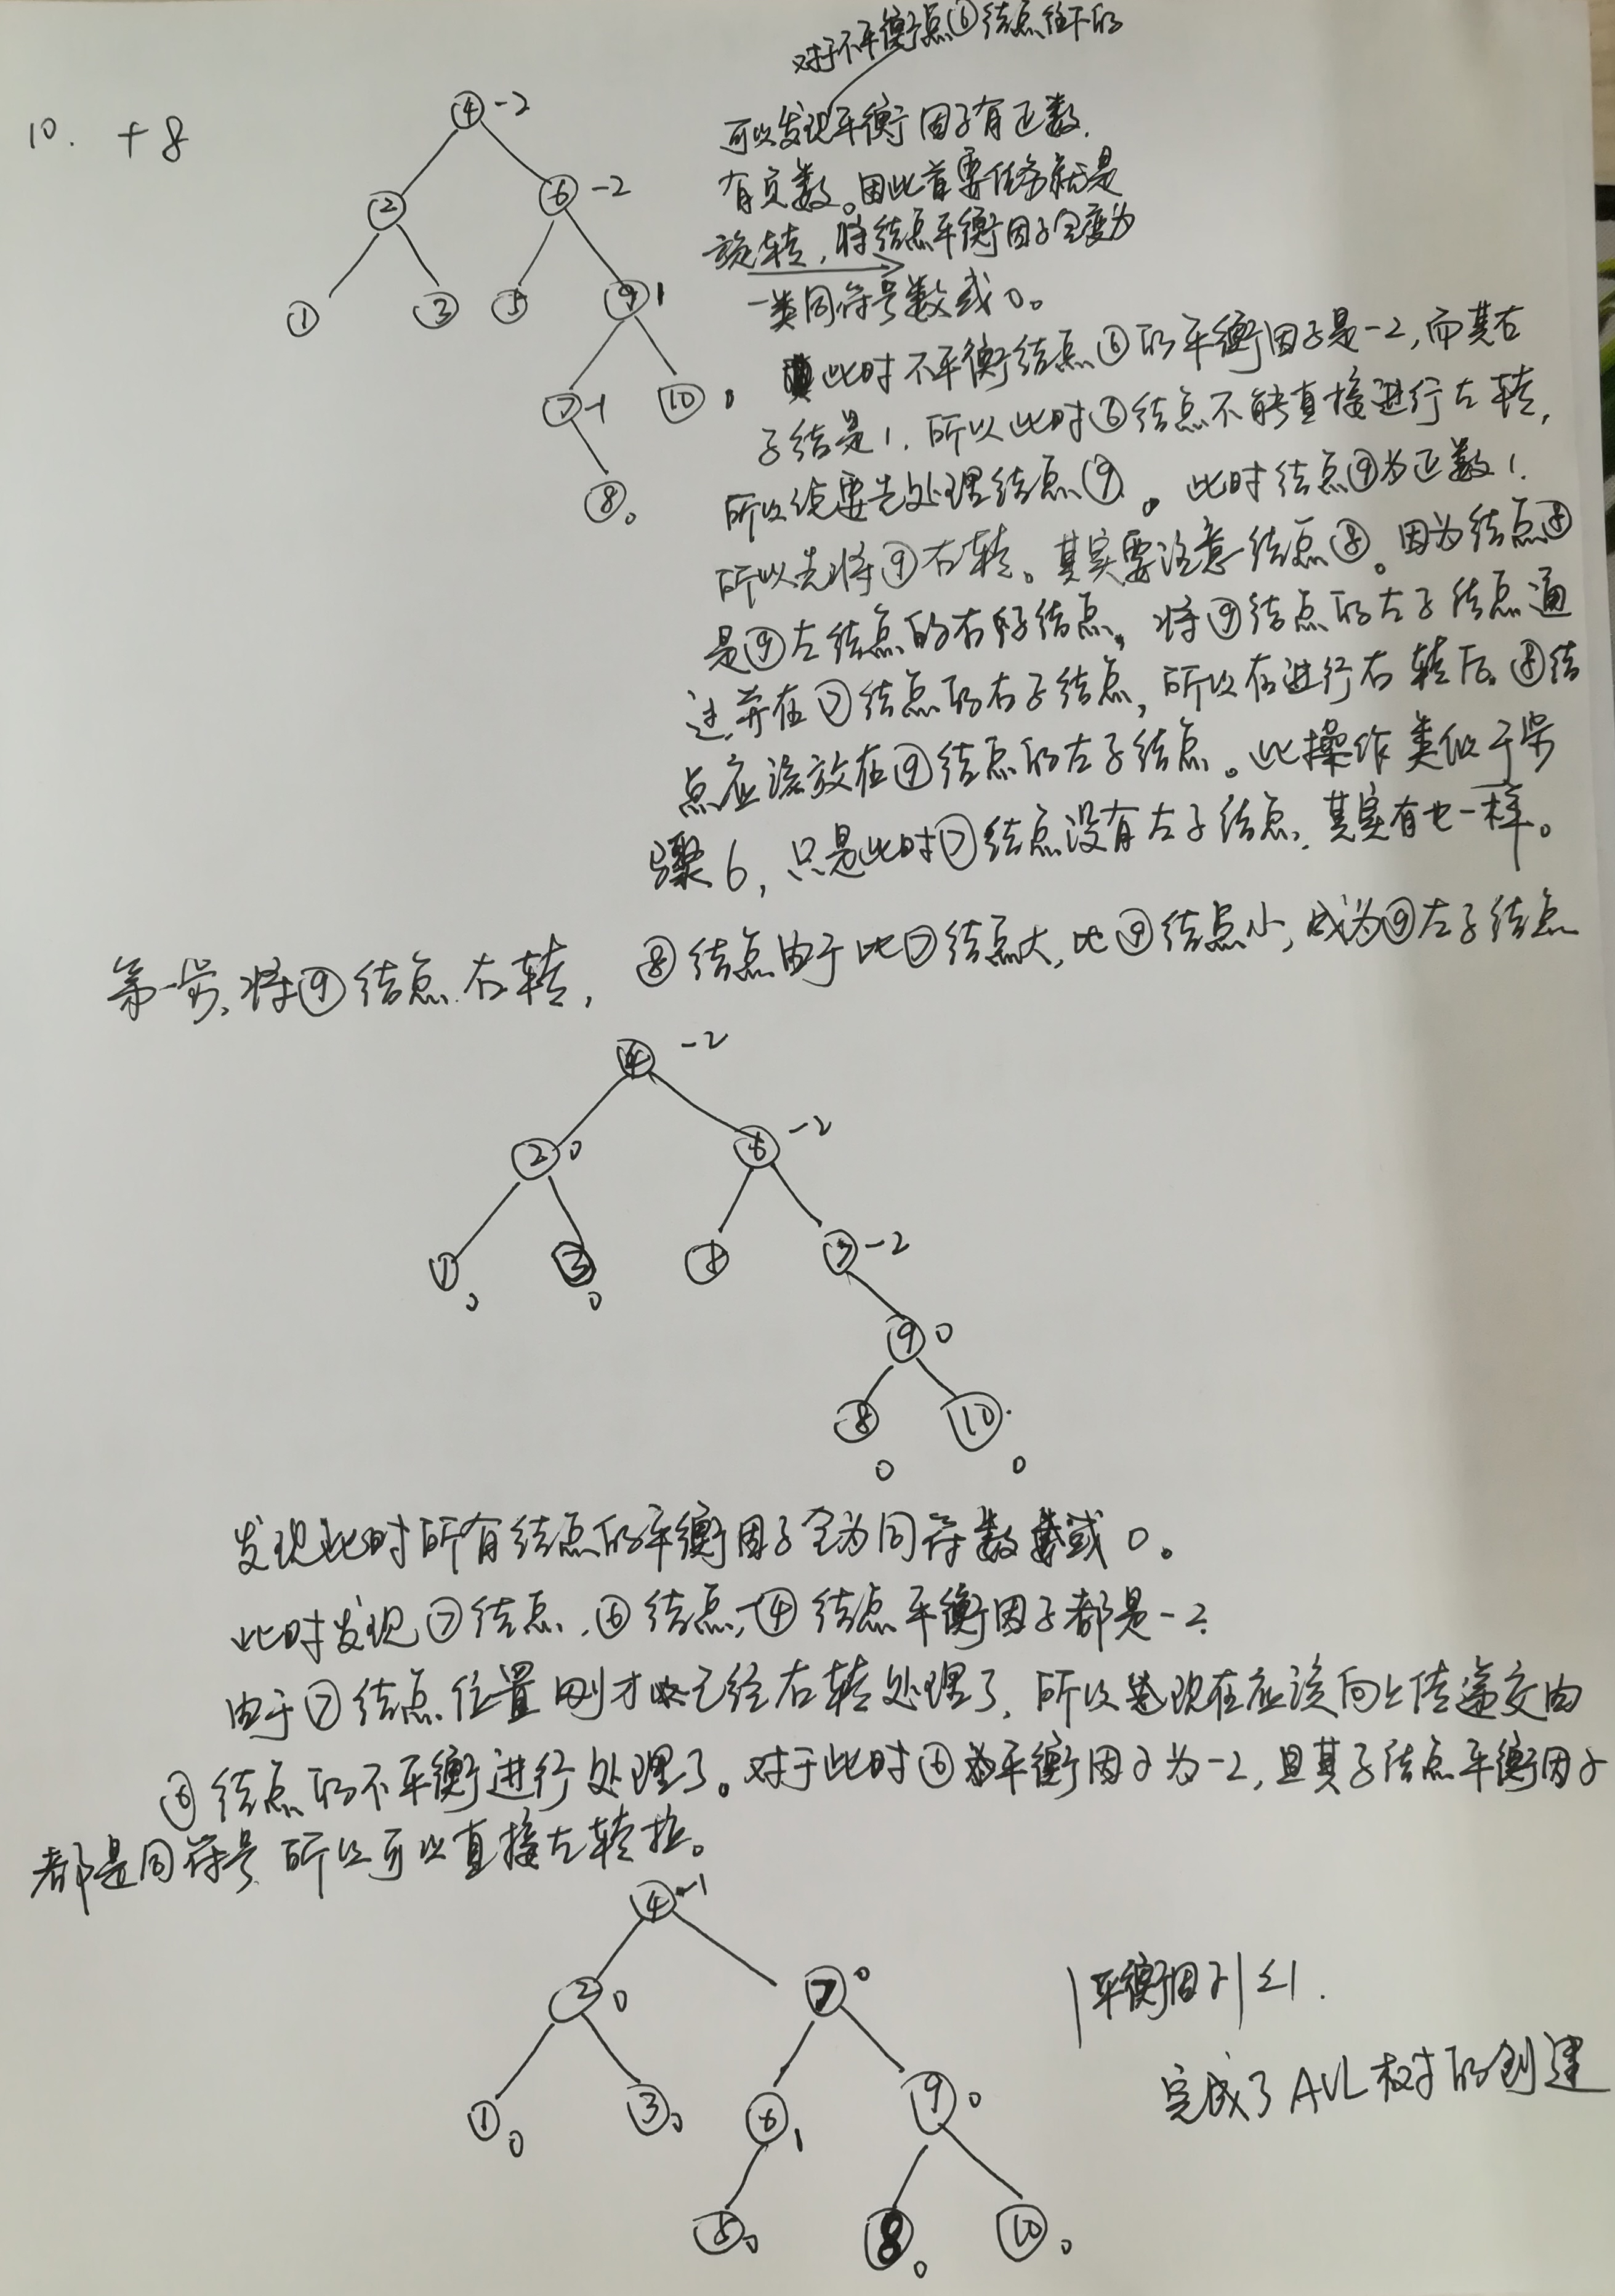 10. +8
对于不平衡点⑥结点往下的
可以发现平衡因子有正数.
有负数。因此首要任务就是
旋转,将结点平衡因子全变为
一类同符号数或0。
④-2
② ⑥-2
① ③ ⑤ ⑨1
⑦-1 ⑩0
⑧0
此时不平衡结点⑥的平衡因子是-2,而其右
子结是1.所以此时⑥结点不能直接进行左转,
所以统要先处理结点⑨。此时结点⑨为正数1.
所以先将⑨右转。其实要注意结点⑧。因为结点⑧
是⑨左结点的右子结点,将⑨结点的左子结点通
过.并在⑦结点的右子结点,所以在进行右转后.⑧结
点应该放在⑨结点的左子结点。此操作类似于步
骤6,只是此时⑦结点没有左子结点,其实有也一样。
第一步,将⑨结点右转,⑧结点由于比⑦结点大,比⑨结点小,成为⑨左子结点
④-2
②0 ⑥-2
①0 ③0 ⑤ ⑦-2
⑨0
⑧0 ⑩0
发现此时所有结点的平衡因子全为同符数或0。
此时发现⑦结点,⑥结点,④结点平衡因子都是-2.
由于⑦结点位置刚才已经右转处理了,所以现在应该向上传递交由
⑥结点的不平衡进行处理了。对于此时⑥平衡因子为-2,且其子结点平衡因子
都是同符号 所以可以直接左转拉。
④-1
②0 ⑦0
①0 ③0 ⑥1 ⑨0
⑤0 ⑧0 ⑩0
|平衡因子|≤1.
完成了AVL树的创建